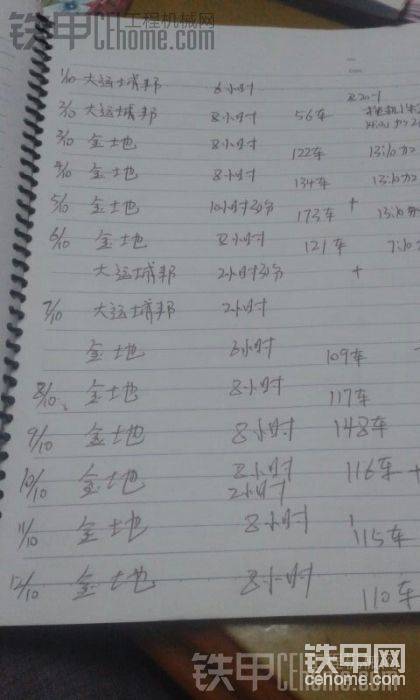 铁甲工程机械网
cehome.com
1/10 大运城邦 6小时
2/10 大运城邦 8小时 56车
3/10 金地 8小时 122车 13:10加
4/10 金地 8小时 134车 13:10加
5/10 金地 10小时30分 173车 + 13:10加
6/10 金地 8小时 121车
大运城邦 2小时30分 +
7/10 大运城邦 2小时
金地 6小时 109车
8/10 金地 8小时 117车
9/10 金地 8小时 148车
10/10 金地 8小时 116车 +
2小时
11/10 金地 8小时 115车
12/10 金地 8小时 110车
铁甲工程机械网
cehome.com
铁甲网
cehome.com